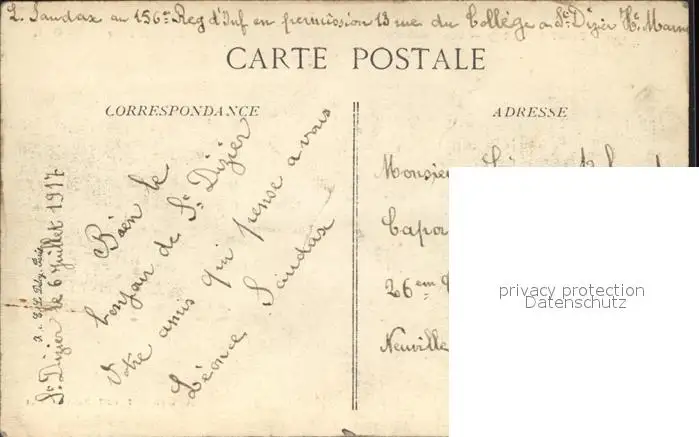 L. Saudax au 156me Reg d'Inf en permission 13 rue du Collège a St Dizier Hte Marne
CARTE POSTALE
CORRESPONDANCE
St Dizier le 6 Juillet 1917
Bien le
bonjour de St Dizier
Votre amis qui pense a vous
Léonce Saudax
ADRESSE
Monsieur
Capor
26em
Neuville
privacy protection
Datenschutz